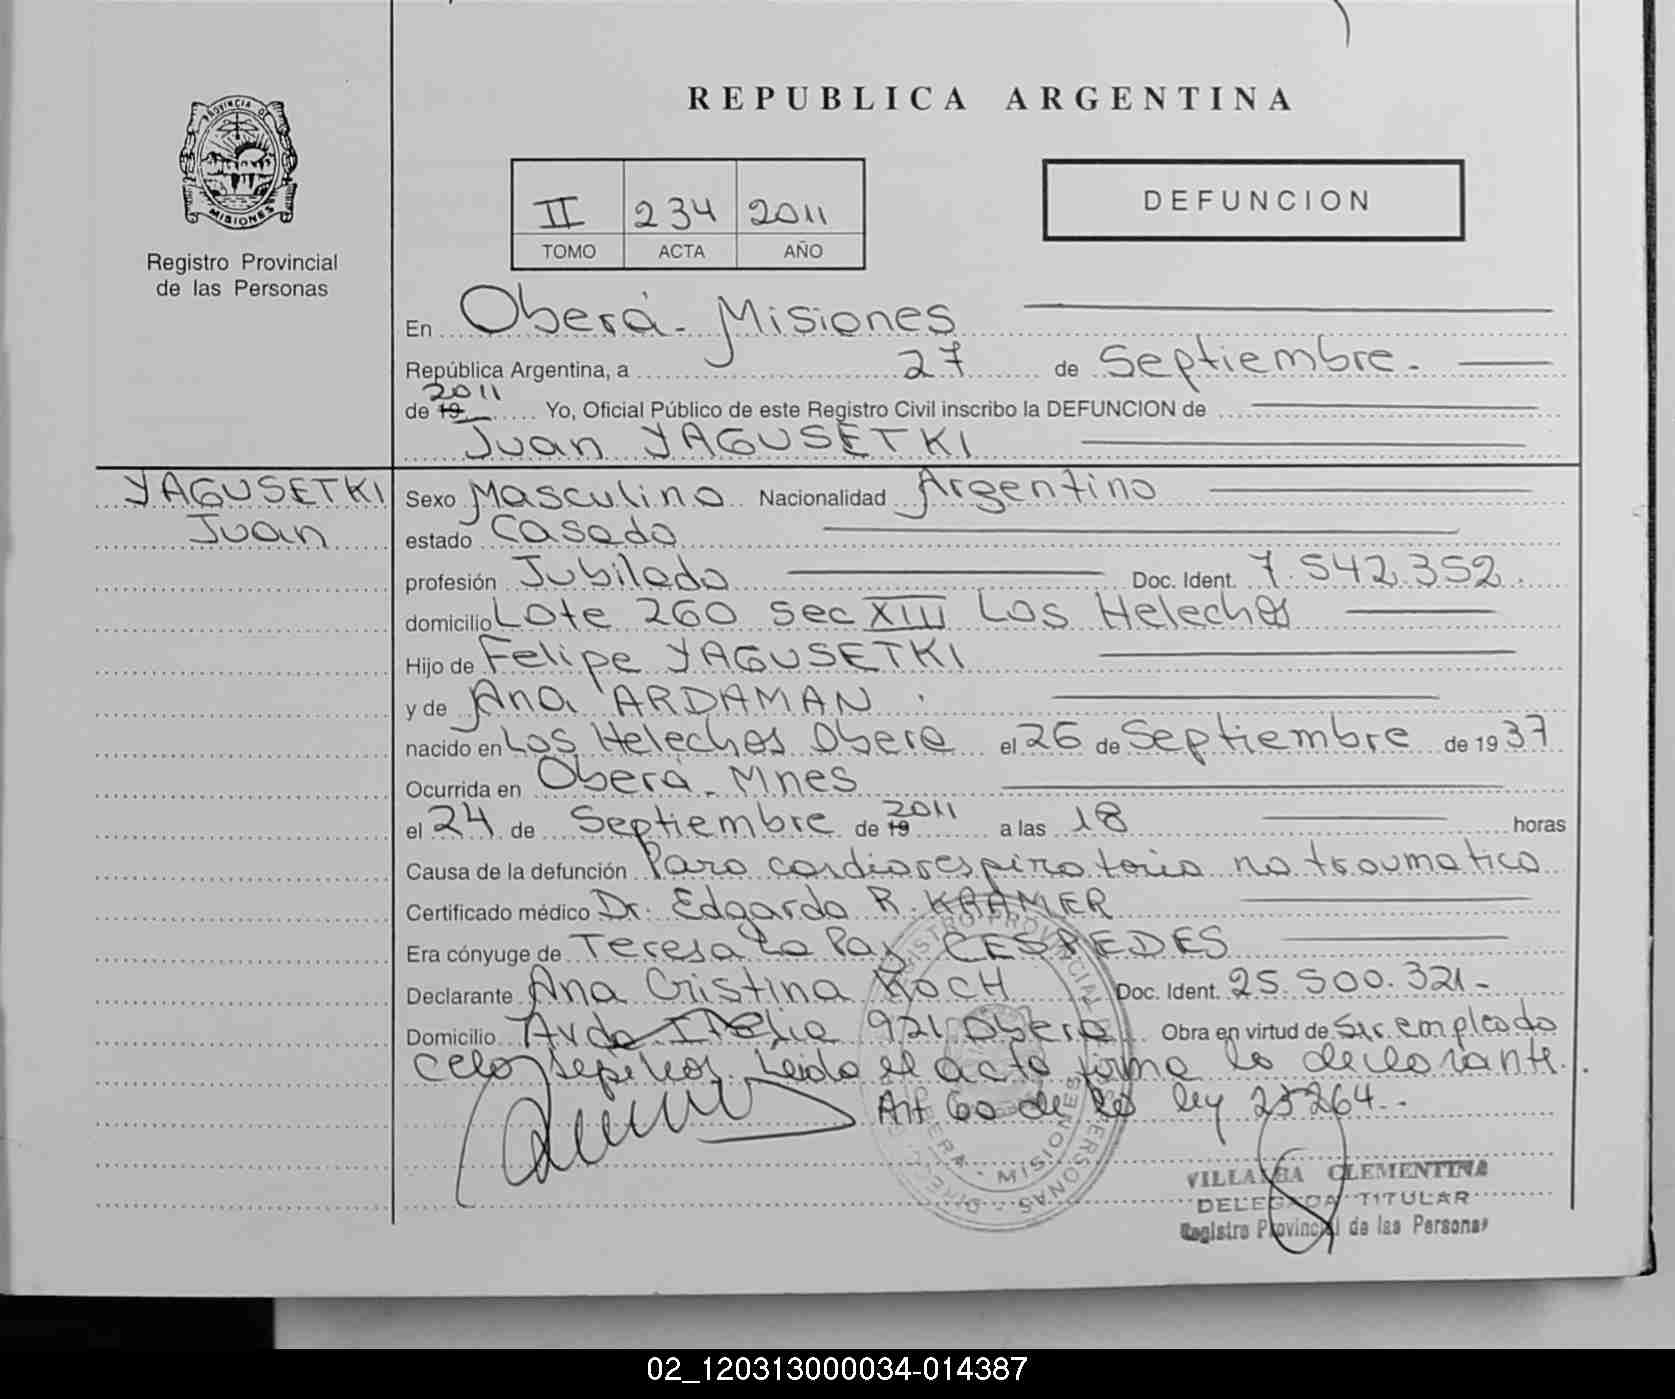 REPUBLICA ARGENTINA
PROVINCIA DE
MISIONES
Registro Provincial
de las Personas
II 234 2011
TOMO ACTA AÑO
DEFUNCION
En Oberá - Misiones
República Argentina, a 27 de Septiembre.
2011
de 19 Yo, Oficial Público de este Registro Civil inscribo la DEFUNCION de
Juan YAGUSETKI
YAGUSETKI
Juan
Sexo Masculino Nacionalidad Argentino
estado Casado
profesión Jubilado Doc. Ident. 7.542.352.
domicilio Lote 260 sec XIII Los Helechos
Hijo de Felipe YAGUSETKI
y de Ana ARDAMAN.
nacido en Los Helechos Obera el 26 de Septiembre de 1937
Ocurrida en Oberá - Mnes
el 24 de Septiembre de 19 2011 a las 18 horas
Causa de la defunción Paro cardiorespiratorio no traumatico
Certificado médico Dr. Edgardo R. KRAMER
Era cónyuge de Teresa La Paz CESPEDES
Declarante Ana Cristina KOCH Doc. Ident. 25.500.321-
Domicilio Avda Italia 921 Obera Obra en virtud de Ser empleada
Leida el acta firma la declarante.
Art 60 de la ley 23264.-
REGISTRO PROVINCIAL DE LAS PERSONAS
OBERA - MISIONES
VILLALBA CLEMENTINA
DELEGADA TITULAR
Registro Provincial de las Personas
02_120313000034-014387